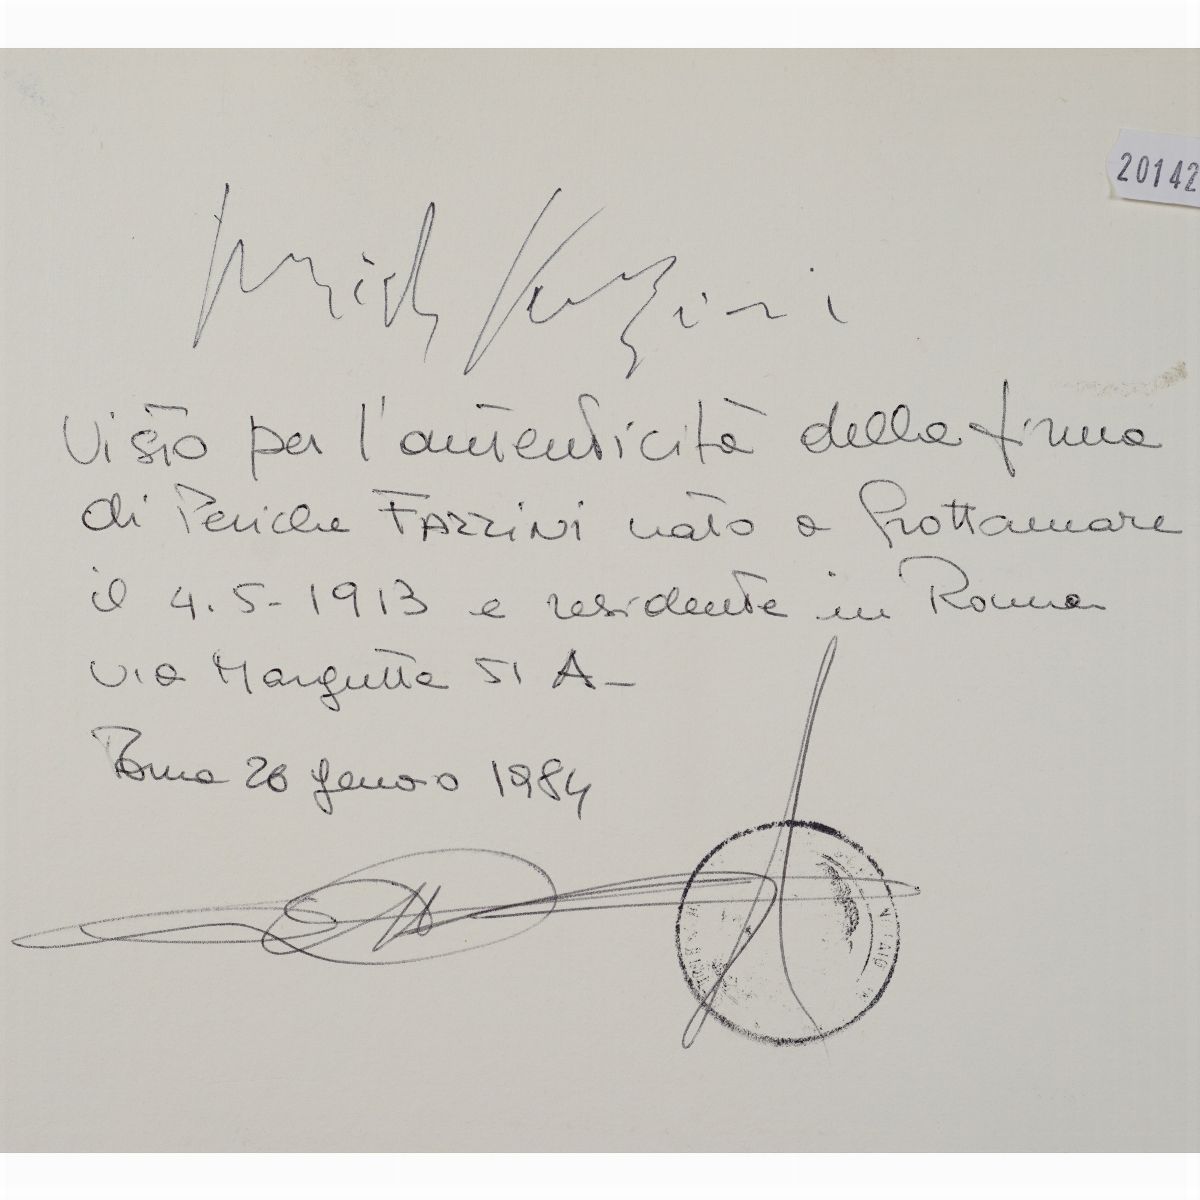 20142
Pericle Fazzini
Visto per l'autenticità della firma
di Pericle FAZZINI nato a Grottamare
il 4.5-1913 e residente in Roma
via Margutta 51 A-
Roma 26 gennaio 1984